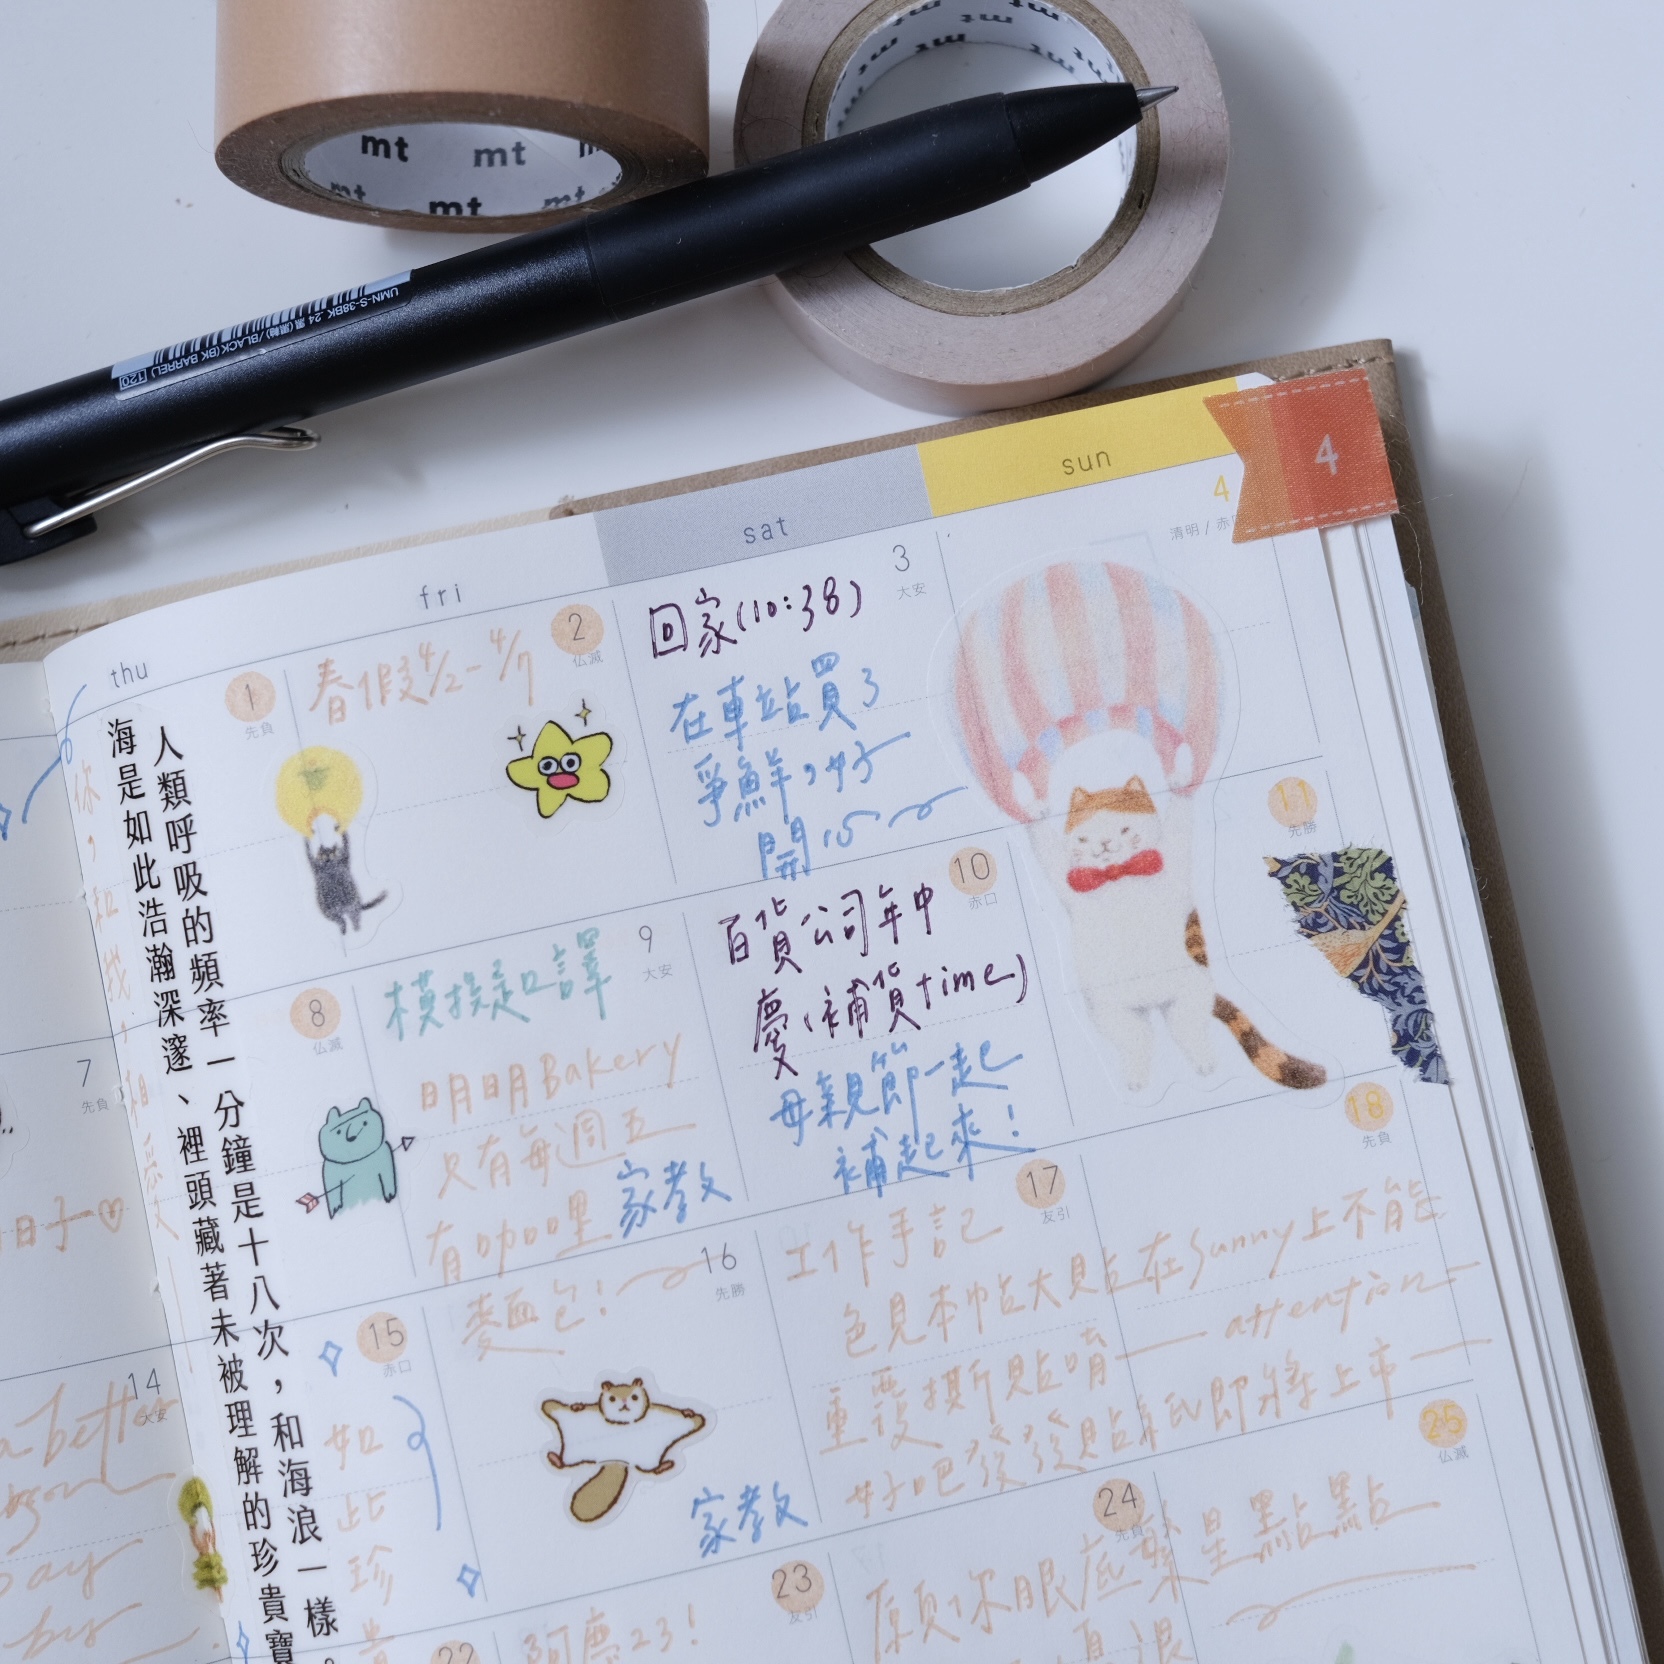 mt
mt
mt
mt
mt
mt
mt
UMN-S-38BK .24 黒(黒軸)/BLACK(BK BARREL) 120
thu
fri
sat
sun
4
1
先負
2
仏滅
春假4/2-4/7
3
大安
回家(10:38)
在車站買了
爭鮮,好
開心
4
清明/赤口
人類呼吸的頻率一分鐘是十八次,和海浪一樣。
海是如此浩瀚深邃、裡頭藏著未被理解的珍貴寶
你,和我,相愛
7
先負
日子♡
8
仏滅
9
大安
模擬口譯
明明Bakery
只有每週五
有咖哩
麵包!
家教
10
赤口
百貨公司年中
慶(補貨time)
母親節一起
補起來!
11
先勝
14
大安
a better
say
by
15
赤口
如此珍貴
16
先勝
家教
17
友引
工作手記
色見本帖大見貼在Sunny上不能
重覆撕貼唷
attention
好吧發發貼紙即將上市
18
先負
22
23
友引
阿慶23!
24
先負
願你眼底繁星點點
25
仏滅